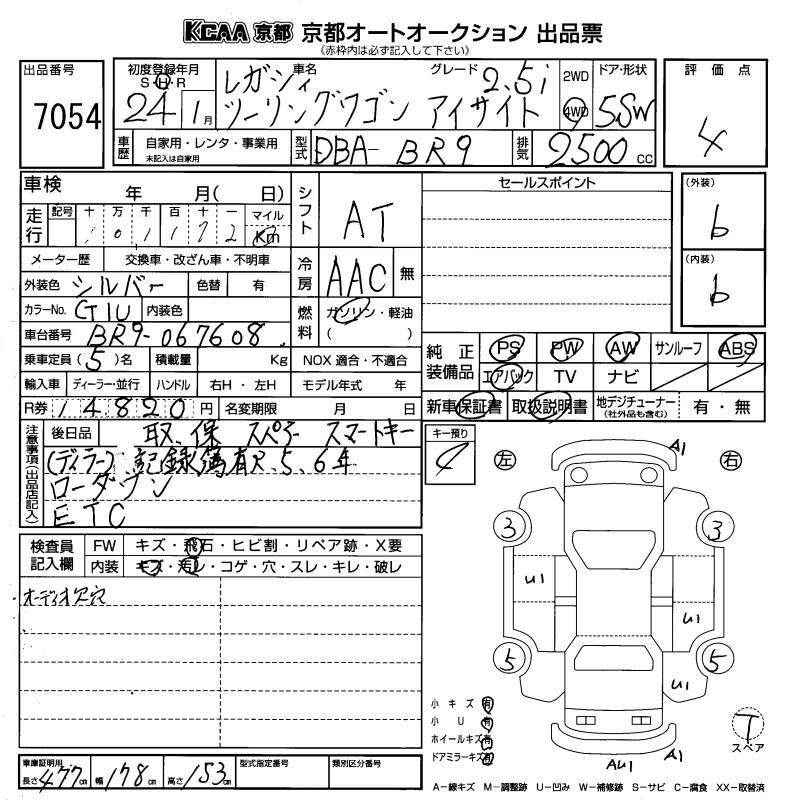 KCAA 京都 京都オートオークション 出品票
(赤枠内は必ず記入して下さい)
出品番号
7054
初度登録年月
S・H・R
24 1月
車名
レガシィ
ツーリングワゴン アイサイト
グレード
2.5i
2WD
4WD
ドア・形状
5SW
評価点
4
車歴
自家用・レンタ・事業用
未記入は自家用
型式
DBA-BR9
排気
2500 cc
車検 年 月( 日)
シフト
AT
セールスポイント
(外装)
b
(内装)
b
走行
記号 十 万 千 百 十 一 マイル
1 0 1 1 7 2 Km
メーター歴 交換車・改ざん車・不明車
冷房
AAC 無
外装色 シルバー 色替 有
カラーNo. G1U 内装色
燃料
ガソリン・軽油
( )
車台番号 BR9-067608
乗車定員(5)名 積載量 Kg
NOX 適合・不適合
輸入車 ディーラー・並行 ハンドル 右H・左H モデル年式 年
R券 14820円 名変期限 月 日
純正装備品
PS PW AW サンルーフ ABS
エアバック TV ナビ
新車保証書 取扱説明書 地デジチューナー(社外品も含む) 有・無
注意事項(出品店記入)
後日品 取、保 スペアー スマートキー
(ディーラー)記録簿有R、5、6年
ローダウン
ETC
キー預り
左
右
A1
3
3
U1
U1
5
5
U1
AU1
A1
T
スペア
検査員記入欄
FW キズ・飛石・ヒビ割・リペア跡・X要
内装 キズ・汚レ・コゲ・穴・スレ・キレ・破レ
オーディオ欠穴
小キズ 有
小U 有
ホイールキズ 有
ドアミラーキズ 有
車庫証明用
長さ477cm 幅178cm 高さ153cm
型式指定番号
類別区分番号
A−線キズ M−調整跡 U−凹み W−補修跡 S−サビ C−腐食 XX−取替済